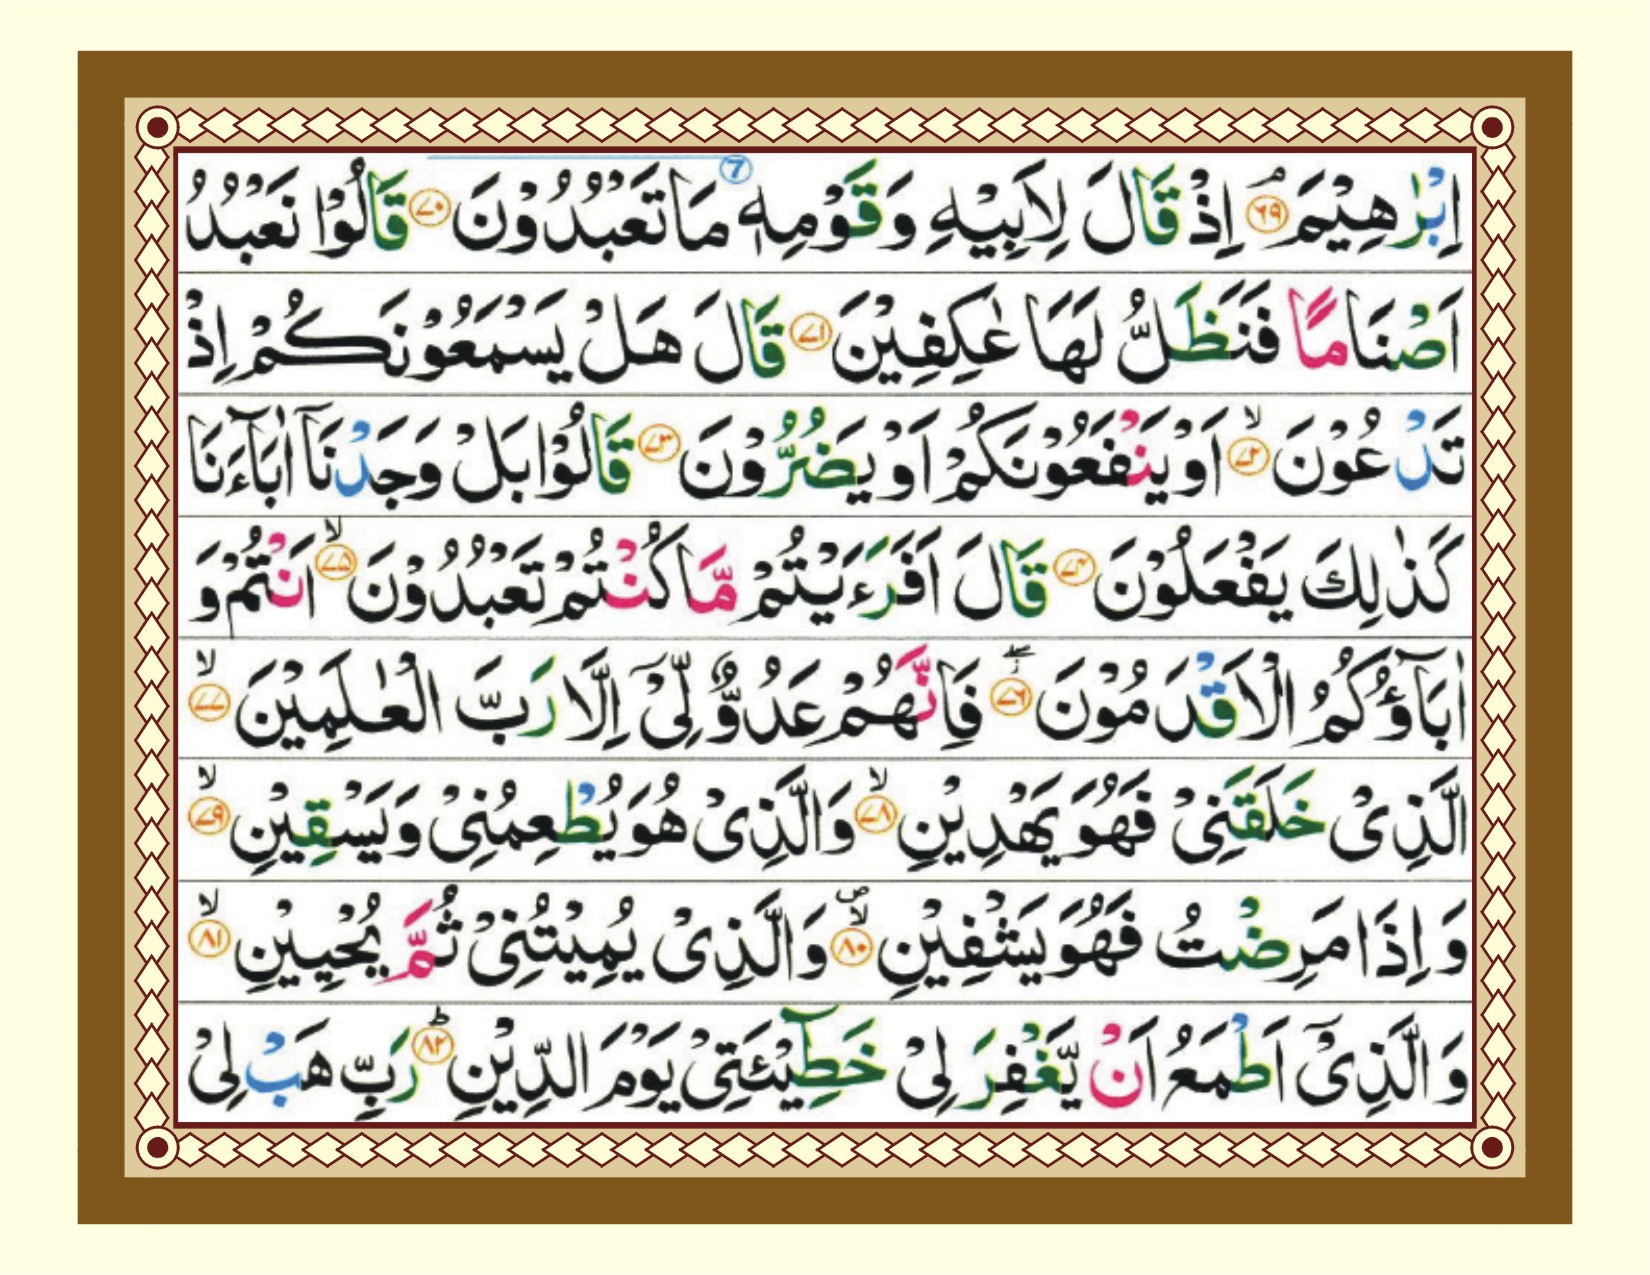 اِبْرٰهِيْمَ ۘ ﴿۶۹﴾ اِذْ قَالَ لِاَبِيْهِ وَقَوْمِهٖ مَا تَعْبُدُوْنَ ﴿۷۰﴾ قَالُوْا نَعْبُدُ
اَصْنَامًا فَنَظَلُّ لَهَا عٰكِفِيْنَ ﴿۷۱﴾ قَالَ هَلْ يَسْمَعُوْنَكُمْ اِذْ
تَدْعُوْنَ ۙ ﴿۷۲﴾ اَوْ يَنْفَعُوْنَكُمْ اَوْ يَضُرُّوْنَ ﴿۷۳﴾ قَالُوْا بَلْ وَجَدْنَاۤ اٰبَآءَنَا
كَذٰلِكَ يَفْعَلُوْنَ ﴿۷۴﴾ قَالَ اَفَرَءَيْتُمْ مَّا كُنْتُمْ تَعْبُدُوْنَ ۙ ﴿۷۵﴾ اَنْتُمْ وَ
اٰبَآؤُكُمُ الْاَقْدَمُوْنَ ۖ ﴿۷۶﴾ فَاِنَّهُمْ عَدُوٌّ لِّيْۤ اِلَّا رَبَّ الْعٰلَمِيْنَ ۙ ﴿۷۷﴾
الَّذِىْ خَلَقَنِىْ فَهُوَ يَهْدِيْنِ ۙ ﴿۷۸﴾ وَالَّذِىْ هُوَ يُطْعِمُنِىْ وَيَسْقِيْنِ ۙ ﴿۷۹﴾
وَاِذَا مَرِضْتُ فَهُوَ يَشْفِيْنِ ۙ ﴿۸۰﴾ وَالَّذِىْ يُمِيْتُنِىْ ثُمَّ يُحْيِيْنِ ۙ ﴿۸۱﴾
وَالَّذِىْۤ اَطْمَعُ اَنْ يَّغْفِرَ لِىْ خَطِٓيْـئَتِىْ يَوْمَ الدِّيْنِ ؕ ﴿۸۲﴾ رَبِّ هَبْ لِىْ